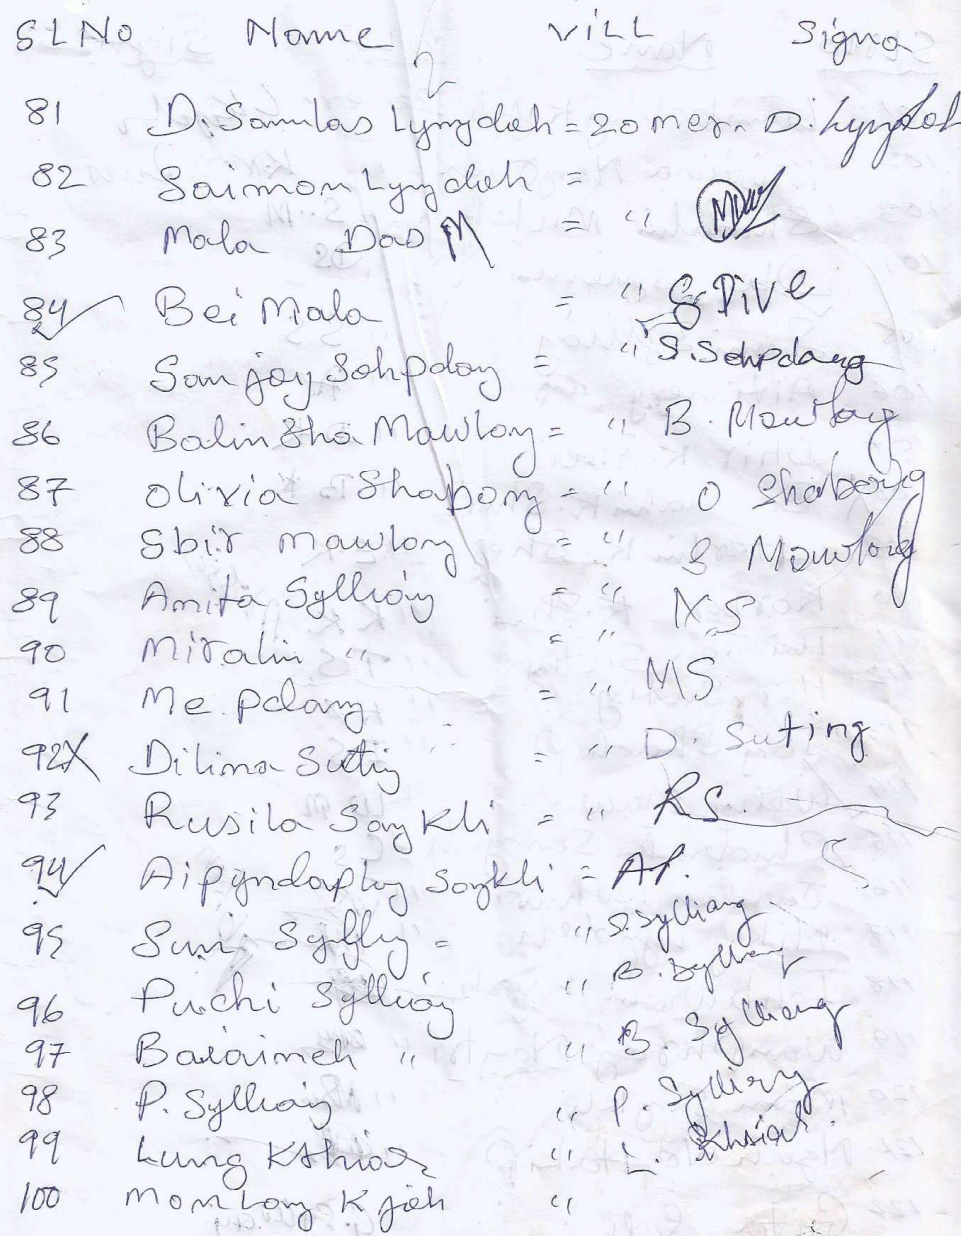 SLNo Name VILL Signa
2
81 D. Samulas Lyngdoh = 20 mer. D. Lyngdoh
82 Saimon Lyngdoh =
83 Mala Das M = "
84 Bei Mala = " S Dive
85 Sanjoy Sohpdang = " S. Sohpdang
86 Balinsha Mawlong = " B. Mawlong
87 Olivia Shabong = " O Shabong
88 Sbir Mawlong = " S Mawlong
89 Amita Sylliang = " N.S
90 Miralin " = "
91 Me. Pdang = " MS
92X Dilima Suting = " D. Suting
93 Rusila Song Kli = " RS.
94 Aipyndaplang Songkli = AP.
95 Suri Sylliang = " S. Sylliang
96 Puchi Sylliang " B. Sylliang
97 Balaimeh " " B. Sylliang
98 P. Sylliang " P. Sylliang
99 Lung Kthiar " L. Khsiar.
100 Monlang K joh "